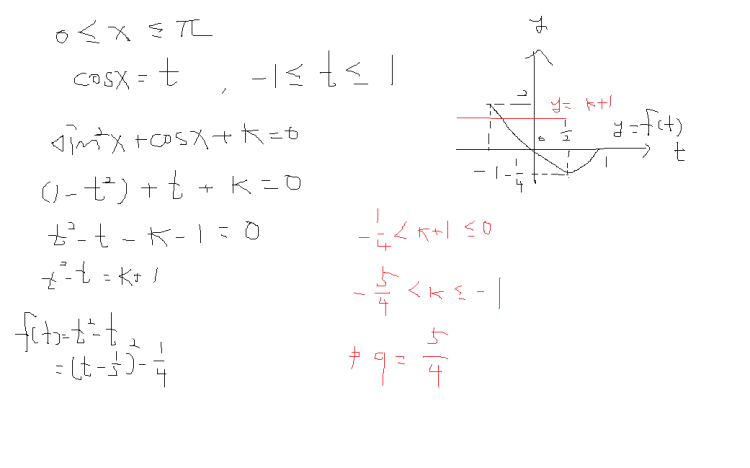 0 ≤ x ≤ π
cosx = t , -1 ≤ t ≤ 1
sin²x + cosx + k = 0
(1 - t²) + t + k = 0
t² - t - k - 1 = 0
t² - t = k + 1
f(t) = t² - t
= (t - 1/2)² - 1/4
y
2
y = k+1
0
1/2
y = f(t)
t
-1
-1/4
1
-1/4 < k+1 ≤ 0
-5/4 < k ≤ -1
p q = 5/4